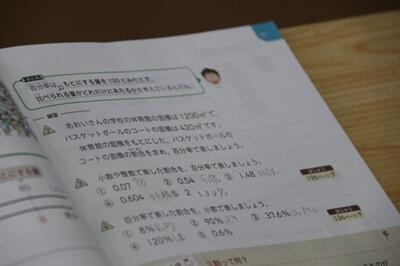 百分率は、もとにする量を100とみたとき、
比べられる量がどれだけにあたるかを表しているんだね。
練習
あおいさんの学校の体育館の面積は1200m²で、
バスケットボールのコートの面積は420m²です。
体育館の面積をもとにした、バスケットボールの
コートの面積の割合を求め、百分率で表しましょう。
小数や整数で表した割合を、百分率で表しましょう。
① 0.07 ② 0.54 ③ 1.48
④ 0.604 ⑤ 2
136ページ
百分率で表した割合を、小数で表しましょう。
① 8% ② 90% ③ 37.6%
④ 120% ⑤ 0.6%
136ページ